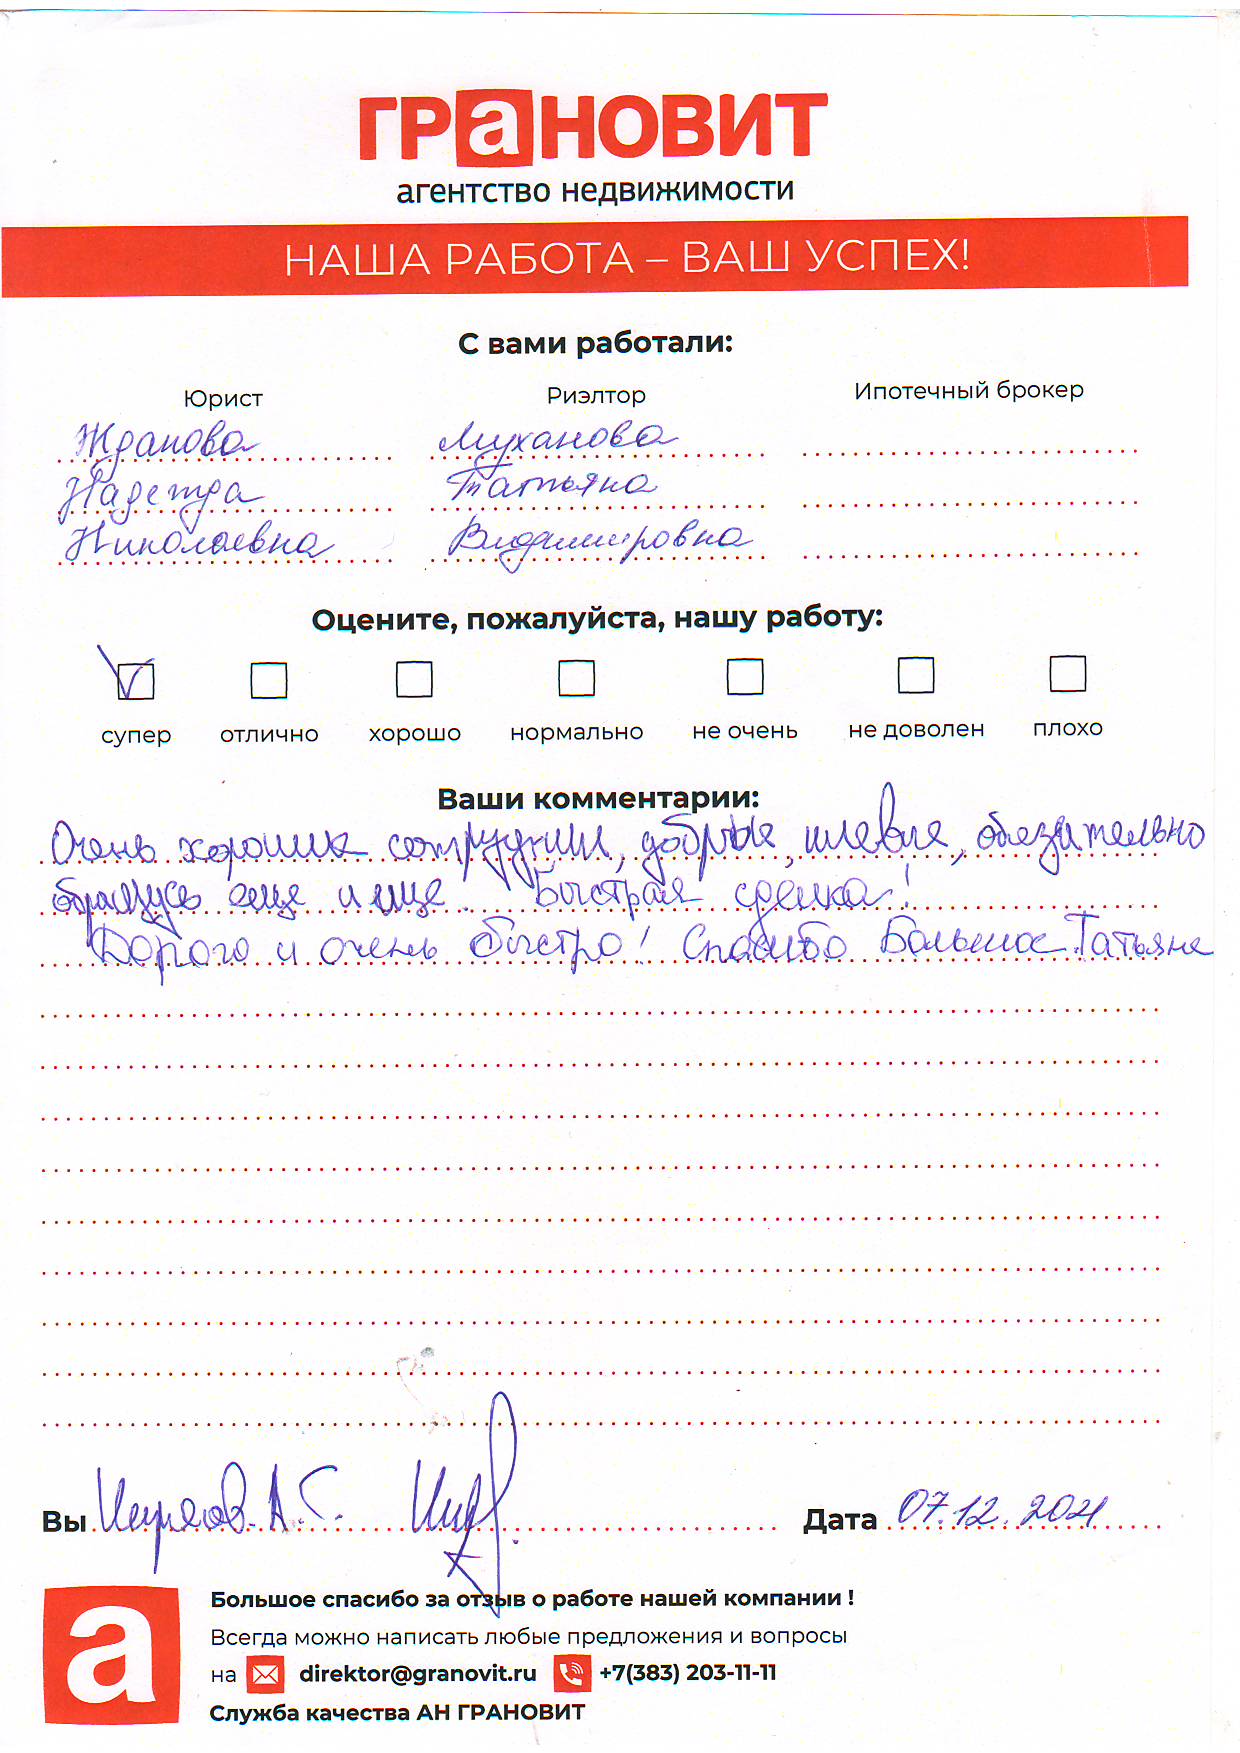 ГРаНОВИТ
агентство недвижимости
НАША РАБОТА – ВАШ УСПЕХ!
С вами работали:
Юрист Риэлтор Ипотечный брокер
Жданова Муханова
Надежда Татьяна
Николаевна Владимировна
Оцените, пожалуйста, нашу работу:
супер отлично хорошо нормально не очень не доволен плохо
Ваши комментарии:
Очень хорошие сотрудники, добрые, обезательно
обращусь еще и еще! Быстрая сделка!
Дорого и очень быстро! Спасибо Большое Татьяне
Вы А.С. Дата 07.12.2021
Большое спасибо за отзыв о работе нашей компании !
Всегда можно написать любые предложения и вопросы
на direktor@granovit.ru +7(383) 203-11-11
Служба качества АН ГРАНОВИТ
а